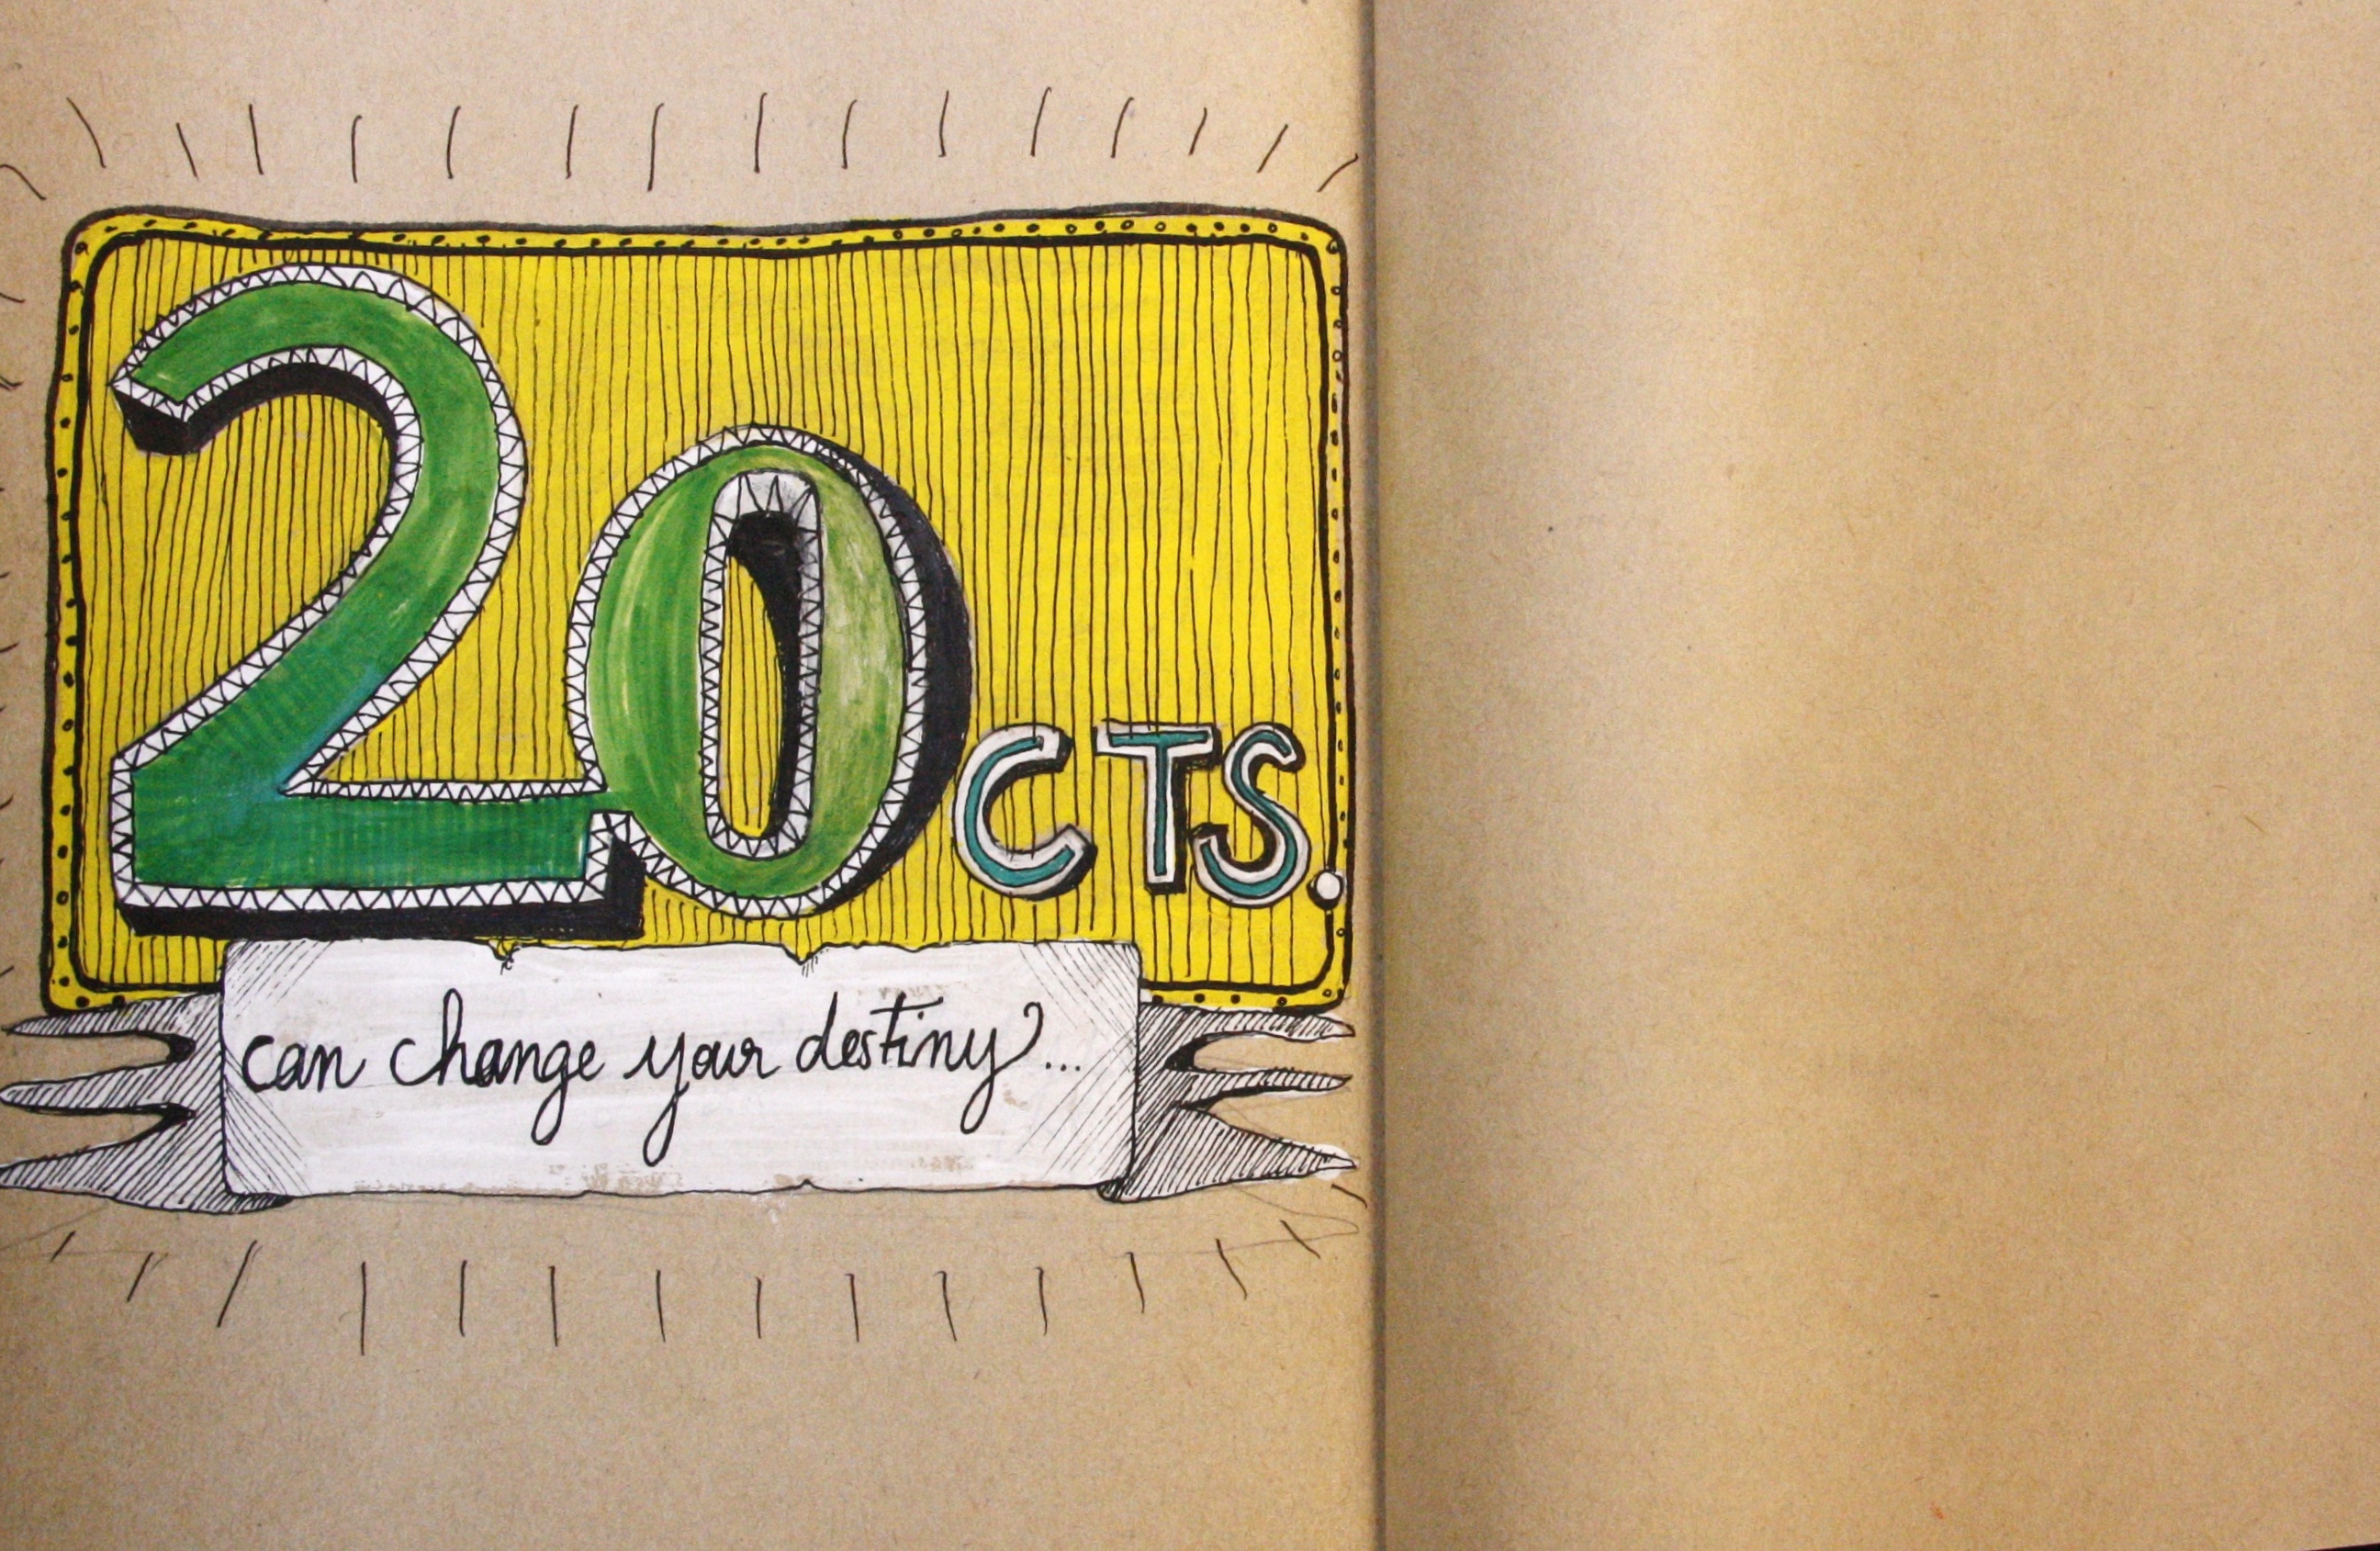 20 CTS.
can change your destiny...